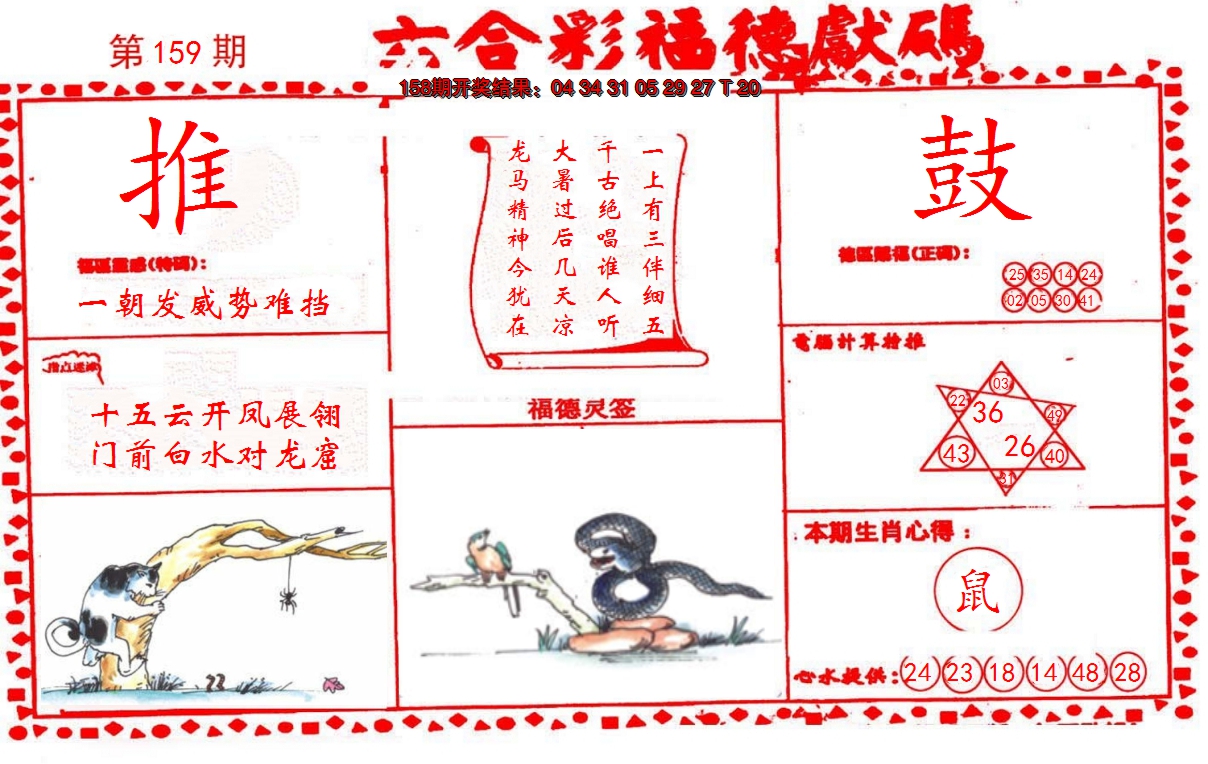 第 159 期
六合彩福德獻碼
158期开奖结果：04 34 31 05 29 27 T 20
推
福區靈感(特碼)：
一朝发威势难挡
指点迷津
十五云开凤展翎
门前白水对龙窟
一上有三伴细五
千古绝唱谁人听
大暑过后几天凉
龙马精神今犹在
福德灵签
鼓
德區賜福(正碼)：
25 35 14 24
02 05 30 41
電腦計算推
03
22 36 49
43 26 40
31
本期生肖心得：
鼠
心水提供：24 23 18 14 48 28
23